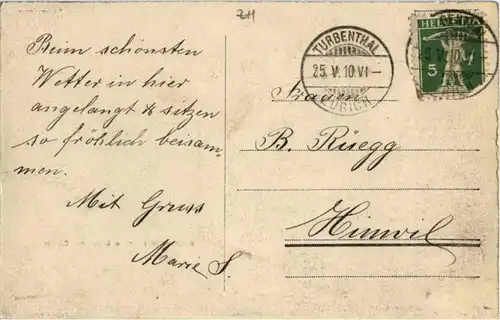 ZH
Beim schönsten
Wetter in hier
angelangt & sitzen
so fröhlich beisam-
men.
Mit Gruss
Marie S
TURBENTHAL
25. V. 10. VI –
ZÜRICH
HELVETIA
5
B. Rüegg
Hinwil